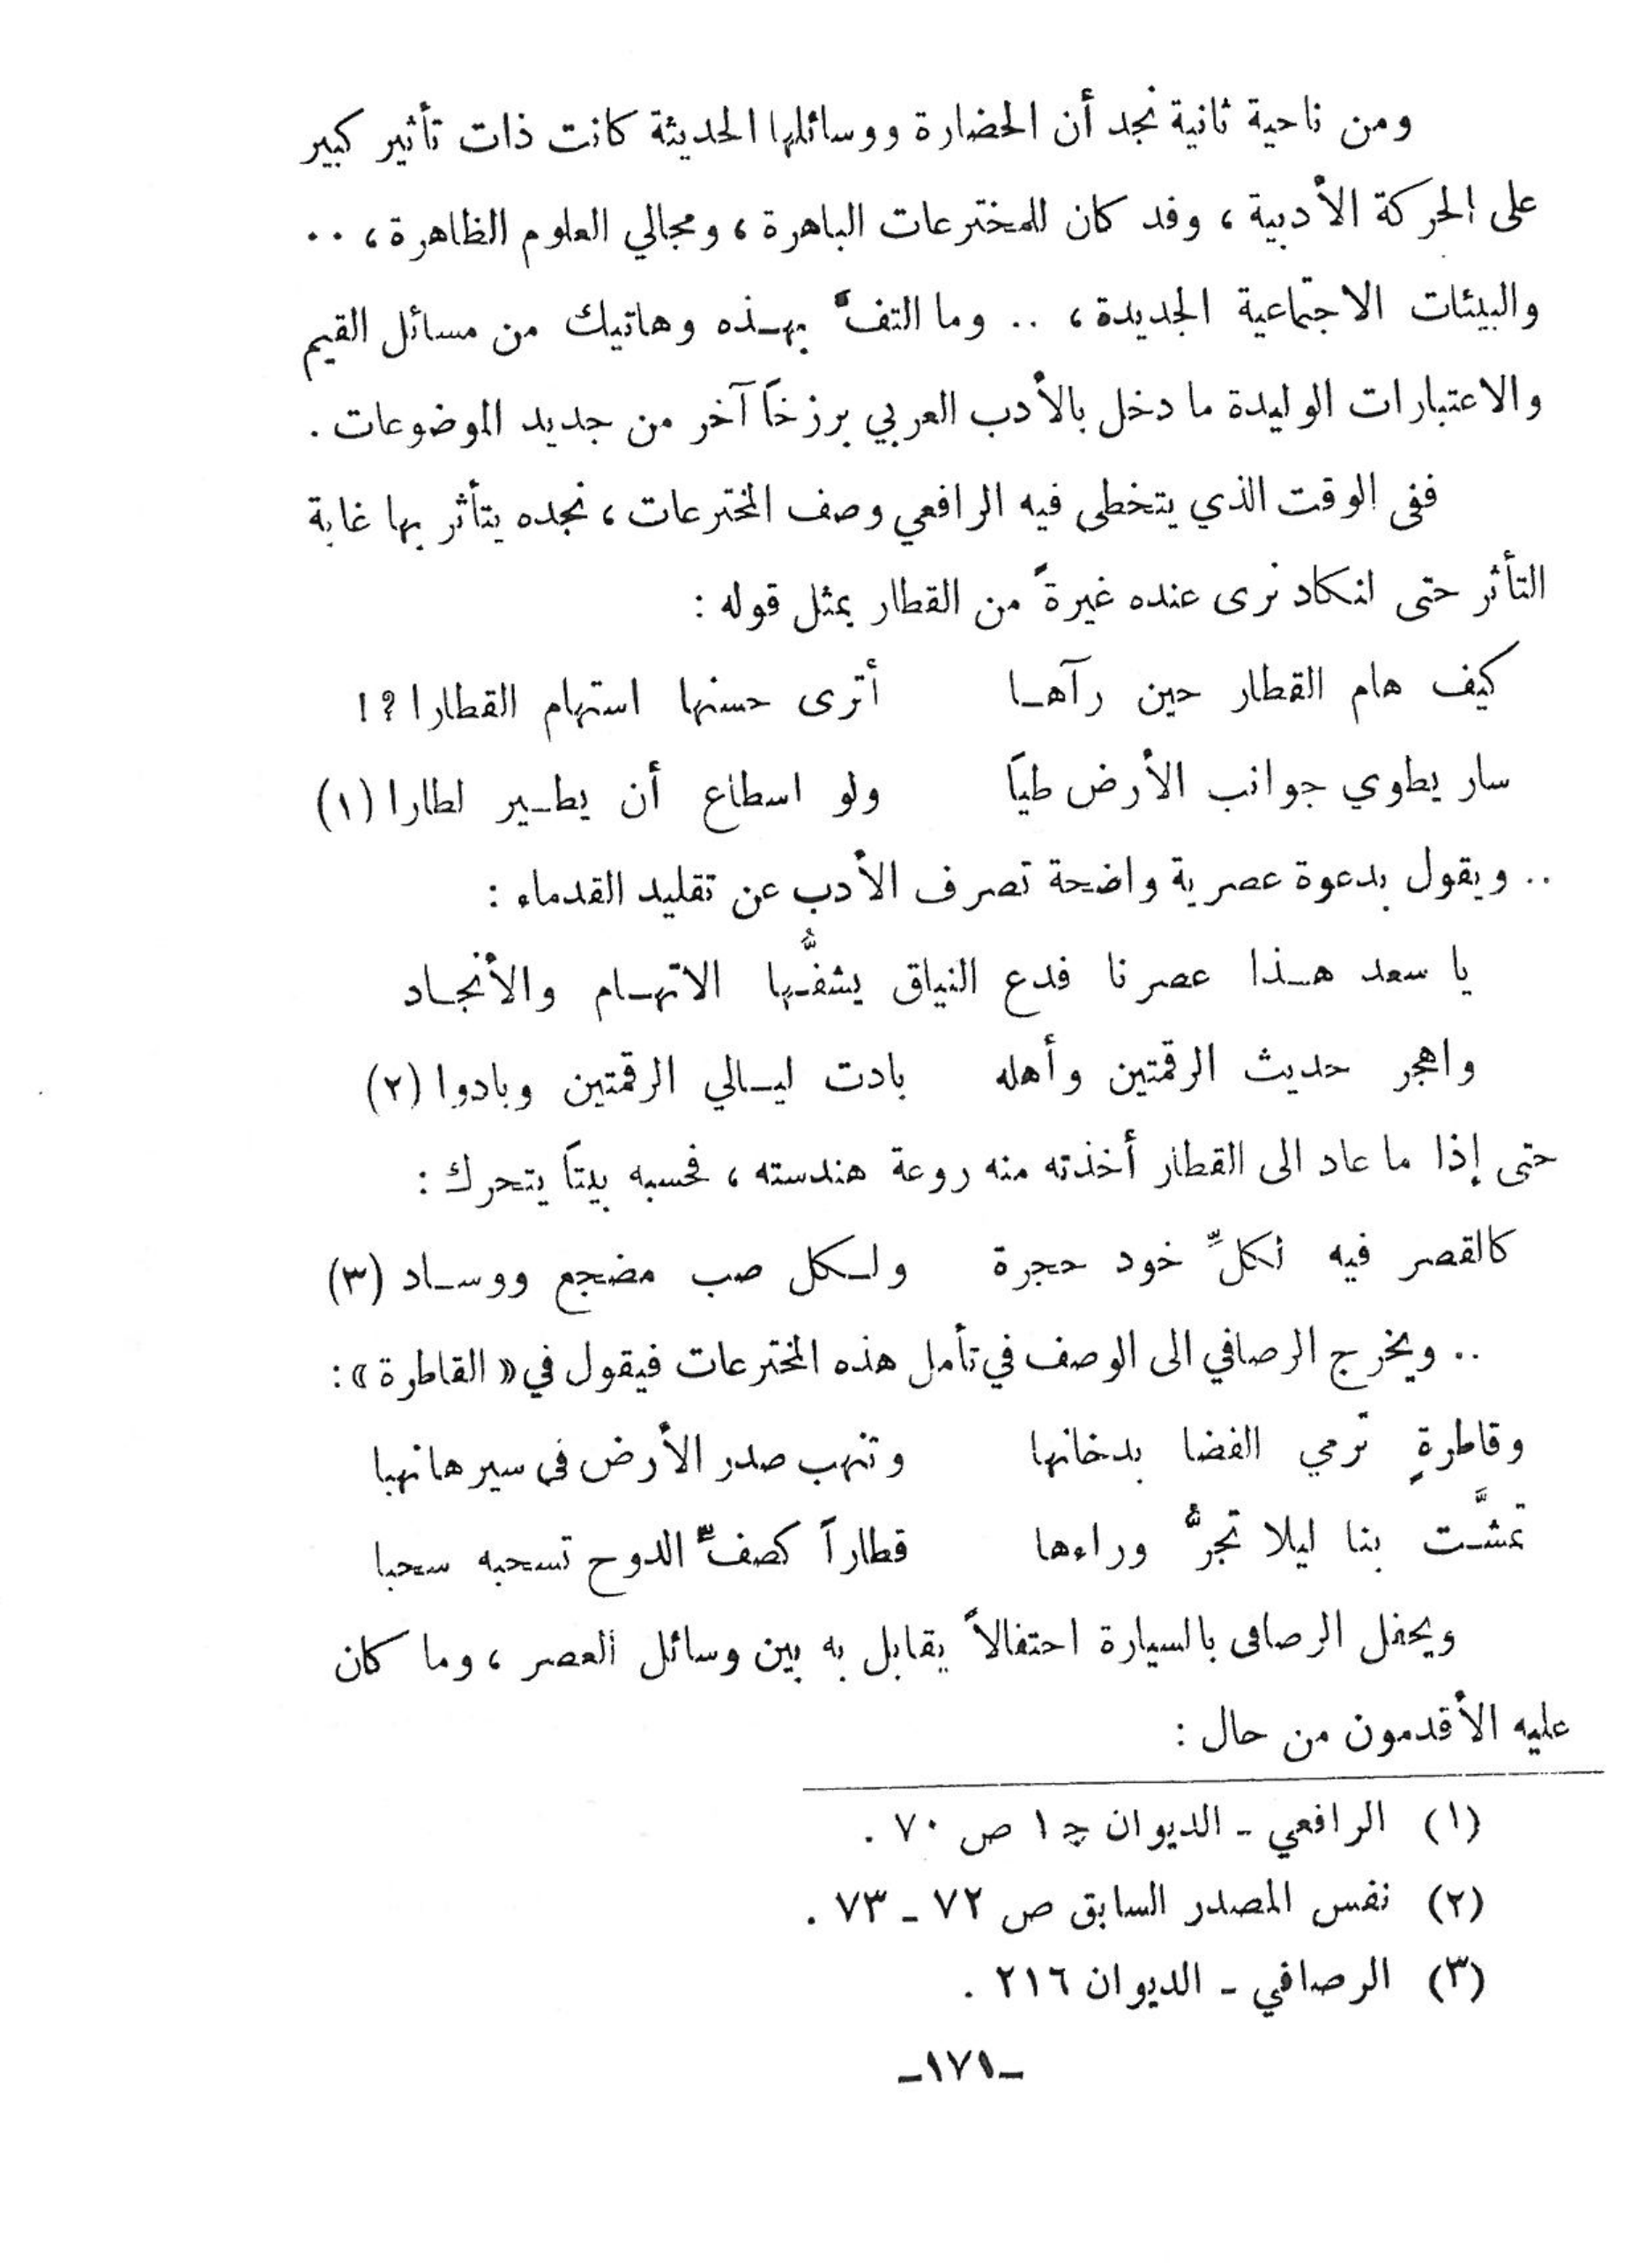 ومن ناحية ثانية نجد أن الحضارة ووسائلها الحديثة كانت ذات تأثير كبير
على الحركة الأدبية ، وقد كان للمخترعات الباهرة ، ومجالي العلوم الظاهرة ، ..
والبيئات الاجتماعية الجديدة ، .. وما التفَّ بهـذه وهاتيك من مسائل القيم
والاعتبارات الوليدة ما دخل بالأدب العربي برزخاً آخر من جديد الموضوعات .
ففي الوقت الذي يتخطى فيه الرافعي وصف المخترعات ، نجده يتأثر بها غاية
التأثر حتى لنكاد نرى عنده غيرةً من القطار بمثل قوله :
كيف هام القطار حين رآهـا أترى حسنها استهام القطارا ؟!
سار يطوي جوانب الأرض طياً ولو اسطاع أن يطـير لطارا (١)
.. ويقول بدعوة عصرية واضحة تصرف الأدب عن تقليد القدماء :
يا سعد هـذا عصرنا فدع النياق يشفُّـها الاتهـام والأنجـاد
واهجر حديث الرقمتين وأهله بادت ليـالي الرقمتين وبادوا (٢)
حتى إذا ما عاد الى القطار أخذته منه روعة هندسته ، فحسبه بيتاً يتحرك :
كالقصر فيه لكلِّ خود حجرة ولـكل صب مضجع ووسـاد (٣)
.. ويخرج الرصافي الى الوصف في تأمل هذه المخترعات فيقول في « القاطرة » :
وقاطرةٍ ترمي الفضا بدخانها وتنهب صدر الأرض في سيرها نهبا
تمشَّـت بنا ليلا تجرُّ وراءها قطاراً كصفِّ الدوح تسحبه سحبا
ويحفل الرصافى بالسيارة احتفالاً يقابل به بين وسائل العصر ، وما كان
عليه الأقدمون من حال :
(١) الرافعي - الديوان ج ١ ص ٧٠ .
(٢) نفس المصدر السابق ص ٧٢ - ٧٣ .
(٣) الرصافي - الديوان ٢١٦ .
-١٧١-